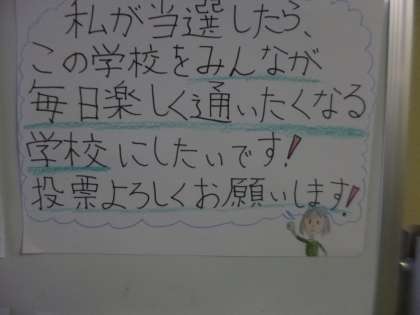 私が当選したら、
この学校をみんなが
毎日楽しく通いたくなる
学校にしたいです!
投票よろしくお願いします!